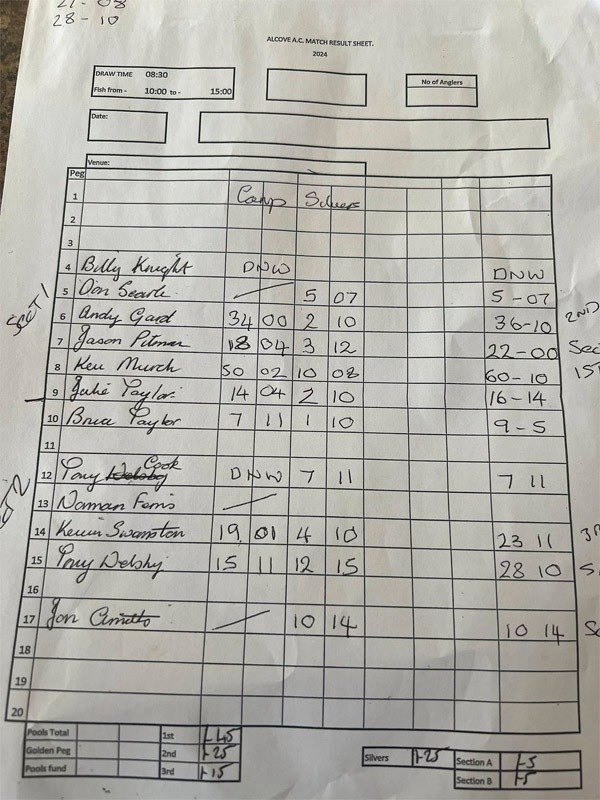 28-10
ALCOVE A.C. MATCH RESULT SHEET.
2024
DRAW TIME 08:30
Fish from - 10:00 to - 15:00
No of Anglers
Date:
Venue:
Peg
1 Carp Silvers
2
3
4 Billy Knight DNW DNW
5 Don Searle 5 07 5-07
6 Andy Gard 34 00 2 10 36-10 2ND
7 Jason Pitman 18 04 3 12 22-00 Sec
8 Ken Murch 50 02 10 08 60-10 1ST
9 Julie Taylor 14 04 2 10 16-14
10 Bruce Taylor 7 11 1 10 9-5
11
12 Tony Cook DNW 7 11 7 11
13 Norman Ferris
14 Kevin Swampton 19 01 4 10 23 11 3R
15 Tony Welshy 15 11 12 15 28 10 S
16
17 Jon 10 14 10 14 Sc
18
19
20
SECT 1
Pools Total 1st £45
Golden Peg 2nd £25
Pools fund 3rd £15
Silvers £25
Section A £5
Section B £5